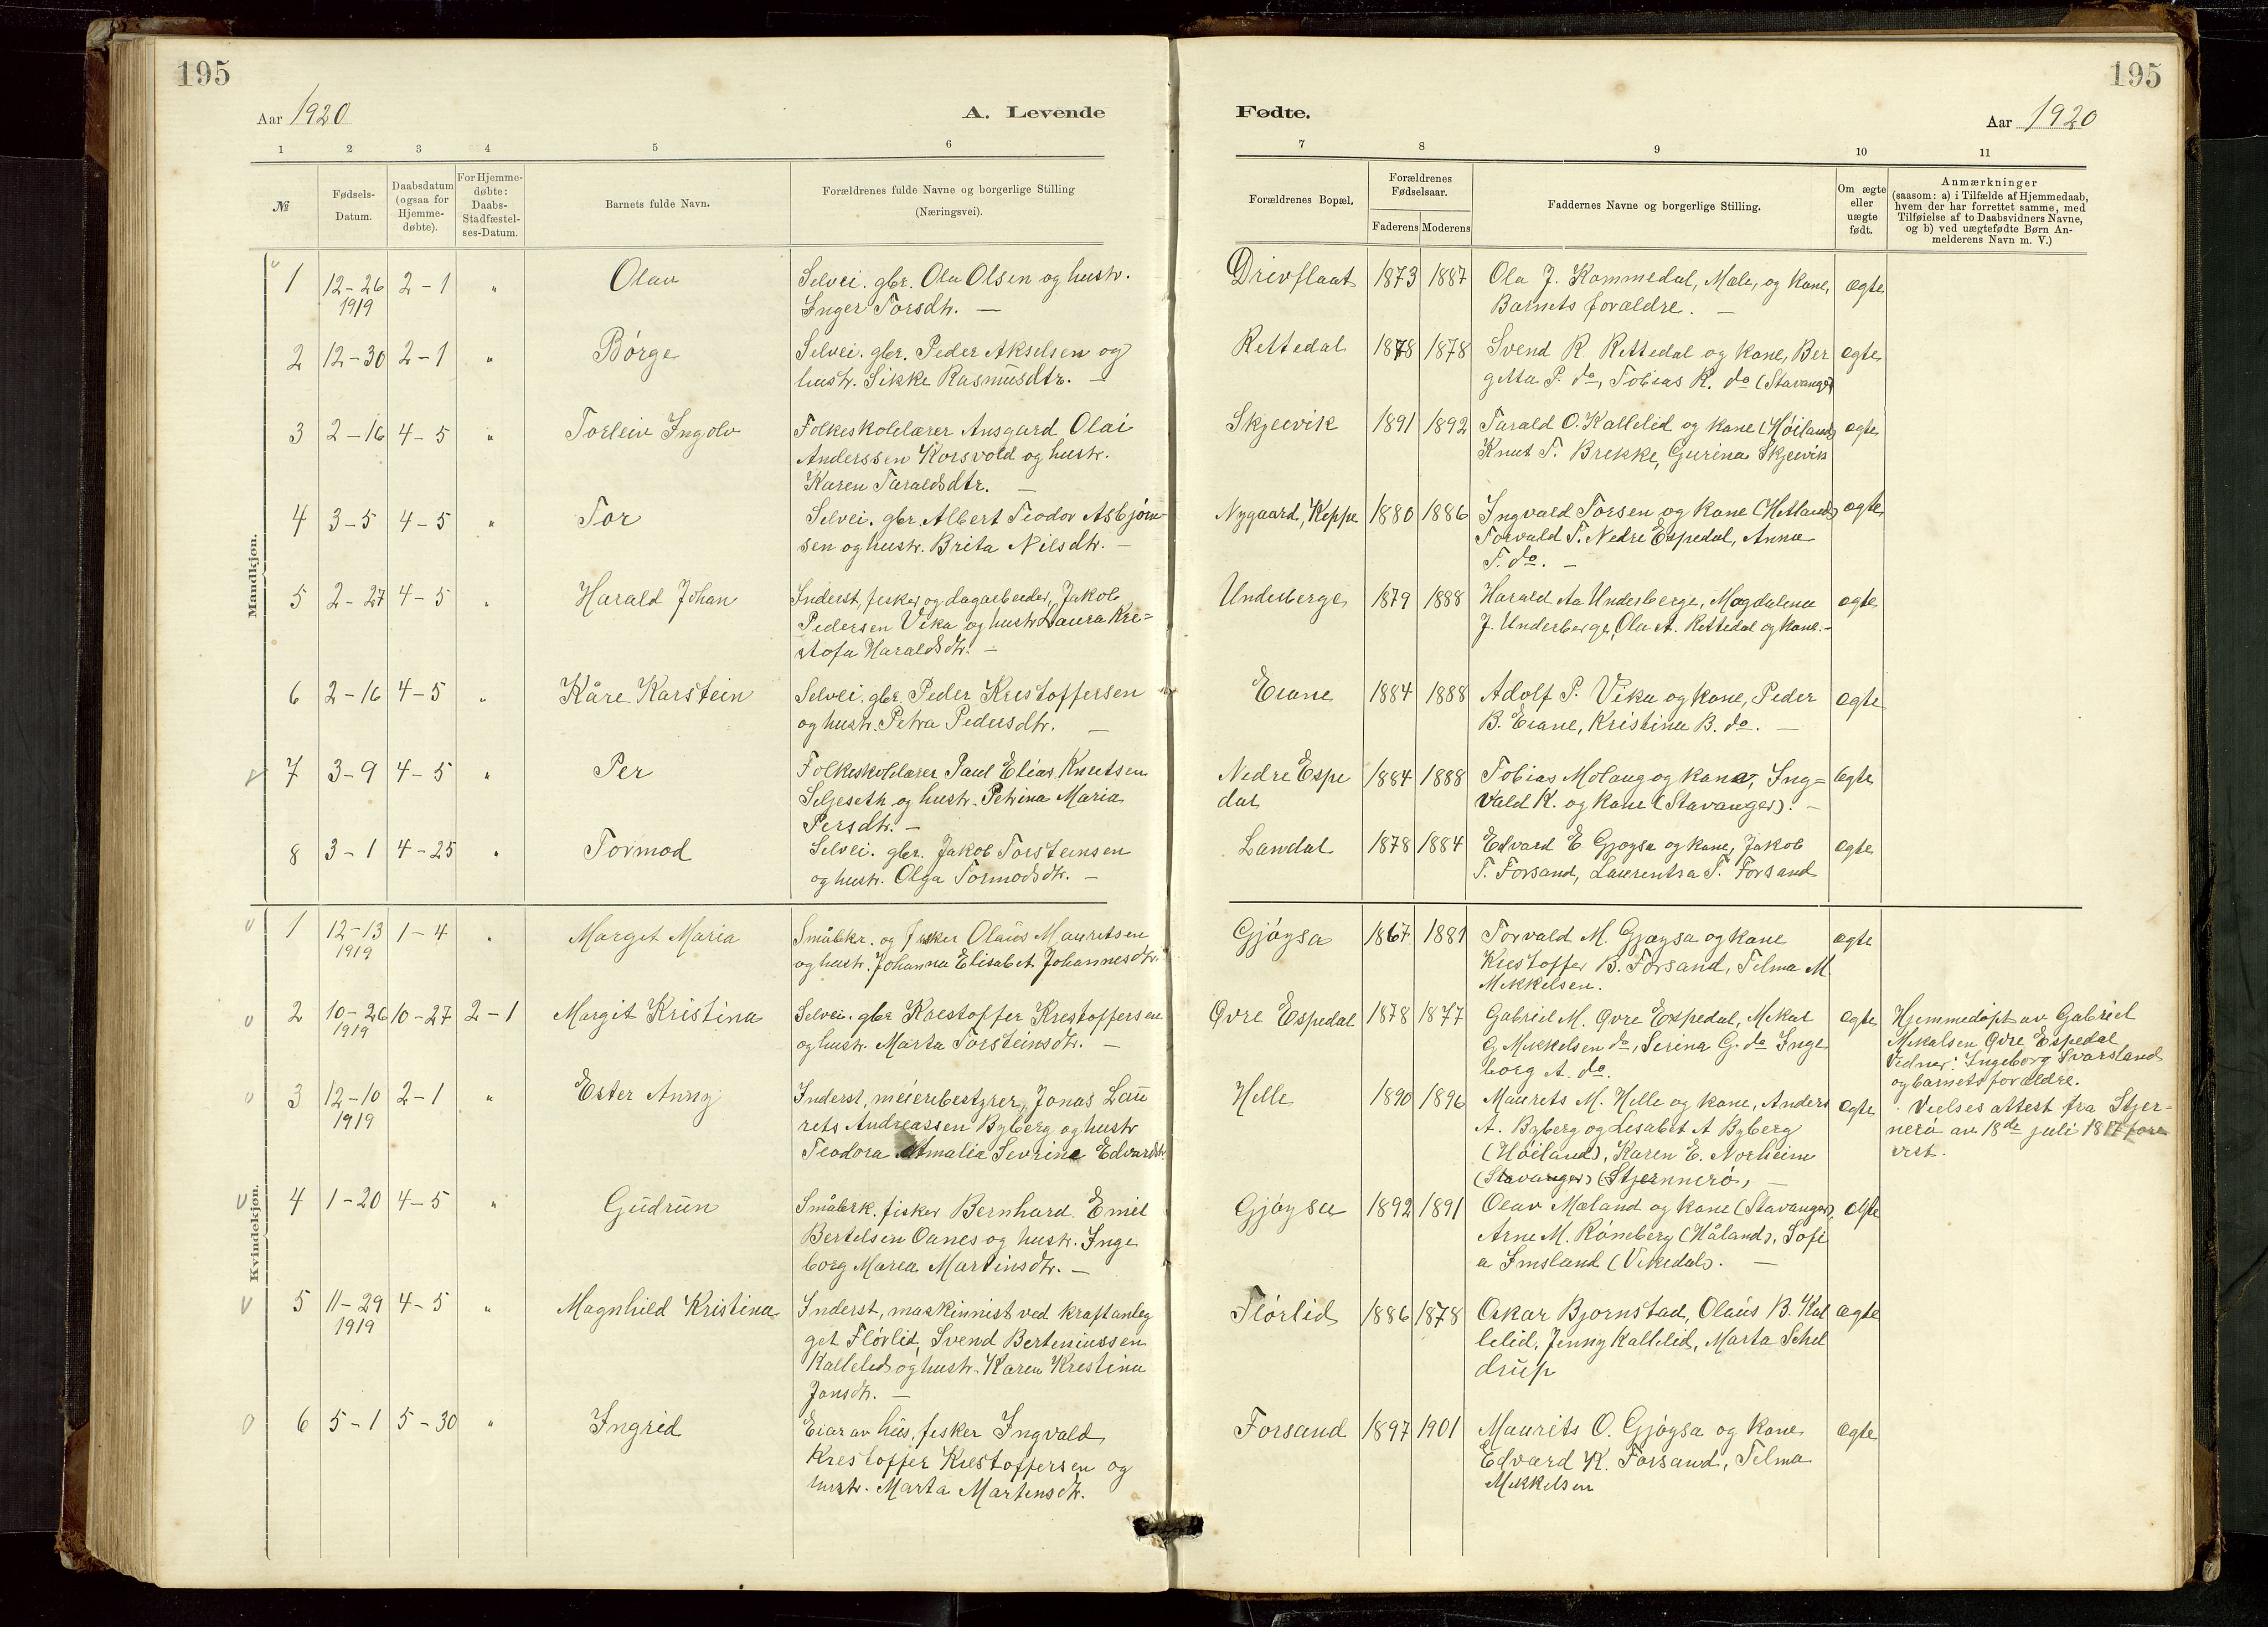 195
Aar 1920
A. Levende
1 2 3 4 5 6
№ Fødsels-Datum. Daabsdatum (ogsaa for Hjemmedøbte). For Hjemmedøbte: Daabs-Stadfæstelses-Datum. Barnets fulde Navn. Forældrenes fulde Navne og borgerlige Stilling (Næringsvei).
Mandkjøn.
1 12-26 2-1 " Olav Selvei. gbr. Ola Olsen og hustr.
1919 Inger Torsdtr. —
2 12-30 2-1 " Börge Selvei. gbr. Peder Akselsen og
hustr. Sikke Rasmusdtr. —
3 2-16 4-5 " Torleiv Ingolv Folkeskolelærer Ansgard Olai
Anderssen Korsvold og hustr.
Karen Taraldsdtr. —
4 3-5 4-5 " Tor Selvei. gbr. Albert Teodor Asbjörn
sen og hustr. Brita Nilsdtr. —
5 2-27 4-5 " Harald Johan Inderst, fisker og dagarbeider, Jakob
Pedersen Vika og hustr. Laura Kri=
stofa Haraldsdtr. —
6 2-16 4-5 " Kåre Karstein Selvei. gbr. Peder Kristoffersen
og hustr. Petra Pedersdtr. —
7 3-9 4-5 " Per Folkeskolelærer Paul Elias Knutsen
Seljeseth og hustr. Petrina Maria
Persdtr. —
8 3-1 4-25 " Tormod Selvei. gbr. Jakob Torsteinsen
og hustr. Olga Tormodsdtr. —
Kvindekjøn.
1 12-13 1-4 " Margit Maria Småbkr. og fisker Olaus Mauritsen
1919 og hustr. Johanna Elisabet Johannesdtr.
2 10-26 10-27 2-1 Margit Kristina Selvei. gbr. Kristoffer Kristoffersen
1919 og hustr. Marta Torsteinsdtr. —
3 12-10 2-1 " Ester Anny Inderst, meieribestyrer, Jonas Lau
1919 rits Andreassen Byberg og hustr
Teodora Amalia Sevrine Edvardsdtr.
4 1-20 4-5 " Gudrun Småbrk. fisker Bernhard Emil
Bertelsen Oanes og hustr. Inge
borg Maria Martinsdtr. —
5 11-29 4-5 " Magnhild Kristina Inderst, maskinnist ved kraftanleg
1919 get Flörlid, Svend Berteniussen
Kallelid og hustr. Karen Kristina
Jansdtr. —
6 5-1 5-30 " Ingrid Eiar av hus, fisker Ingvald
Kristoffer Kristoffersen og
hustr. Marta Martinsdtr.
195
Fødte.
Aar 1920
7 8 9 10 11
Forældrenes Bopæl. Forældrenes Fødselsaar. Faderens Moderens Faddernes Navne og borgerlige Stilling. Om ægte eller uægte født. Anmærkninger (saasom: a) i Tilfælde af Hjemmedaab, hvem der har forrettet samme, med Tilføielse af to Daabsvidners Navne, og b) ved uægtefødte Børn Anmelderens Navn m. V.)
Drivflaat 1873 1887 Ola J. Kommedal, Mæle, og kone, ægte
Barnets forældre. —
Rettedal 1878 1878 Svend R. Rettedal og kone, Ber ægte
gitta P. do, Tobias R. do (Stavanger)
Skjeevik 1891 1892 Tarald O. Kallelid og kone (Höiland) ægte
Knut T. Brekke, Gurina Skjeevik
Nygaard, Kleppe 1880 1886 Ingvald Torsen og kone (Hetland) ægte
Torvald T. Nedre Espedal, Anna
T. do. —
Underberge 1879 1888 Harald Aa Underberge, Magdalena ægte
J. Underberge, Ola A. Rettedal og kone. —
Eiane 1884 1888 Adolf P. Vika og kone, Peder ægte
B. Eiane, Kristina B. do. —
Nedre Espe 1884 1888 Tobias Molaug og kone, Ing= ægte
dal vald K. og kone (Stavanger). —
Landal 1878 1884 Edvard E Gjøysa og kone, Jakob ægte
T. Forsand, Laurentsa T. Forsand
Gjöysa 1867 1881 Torvald M. Gjøysa og kone ægte
Kristoffer B. Forsand, Tilma M
Mikkelsen.
Øvre Espedal 1878 1877 Gabriel M. Øvre Espedal, Mikal ægte Hjemmedöpt av Gabriel
G Mikkelsen do, Serina G. do Inge Mikalsen Øvre Espedal
borg A. do. Vidner: Ingeborg Svarsland
og barnets forældre.
Helle 1890 1896 Maurits M. Helle og kone, Anders ægte Vielses attest fra Stjer=
A. Byberg og Lisabet A Byberg nerö av 18de juli 1817 fore
(Höiland), Karen E. Norheim vist.
(Stavanger) (Stjernnerö, —
Gjöysa 1892 1891 Olav Mæland og kone (Stavanger), ægte
Arne M. Röneberg (Håland), Sofi
a Imsland (Vikedal). —
Flörlid 1886 1878 Oskar Bjornstad, Olaus B. Kal ægte
lelid, Jenny Kallelid, Marta Schel
drup
Forsand 1897 1901 Maurits O. Gjöysa og kone ægte
Edvard K. Forsand, Tilma
Mikkelsen